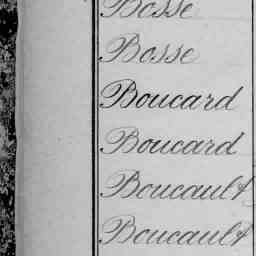 Bosse
Bosse
Boucard
Boucard
Boucault
Boucault